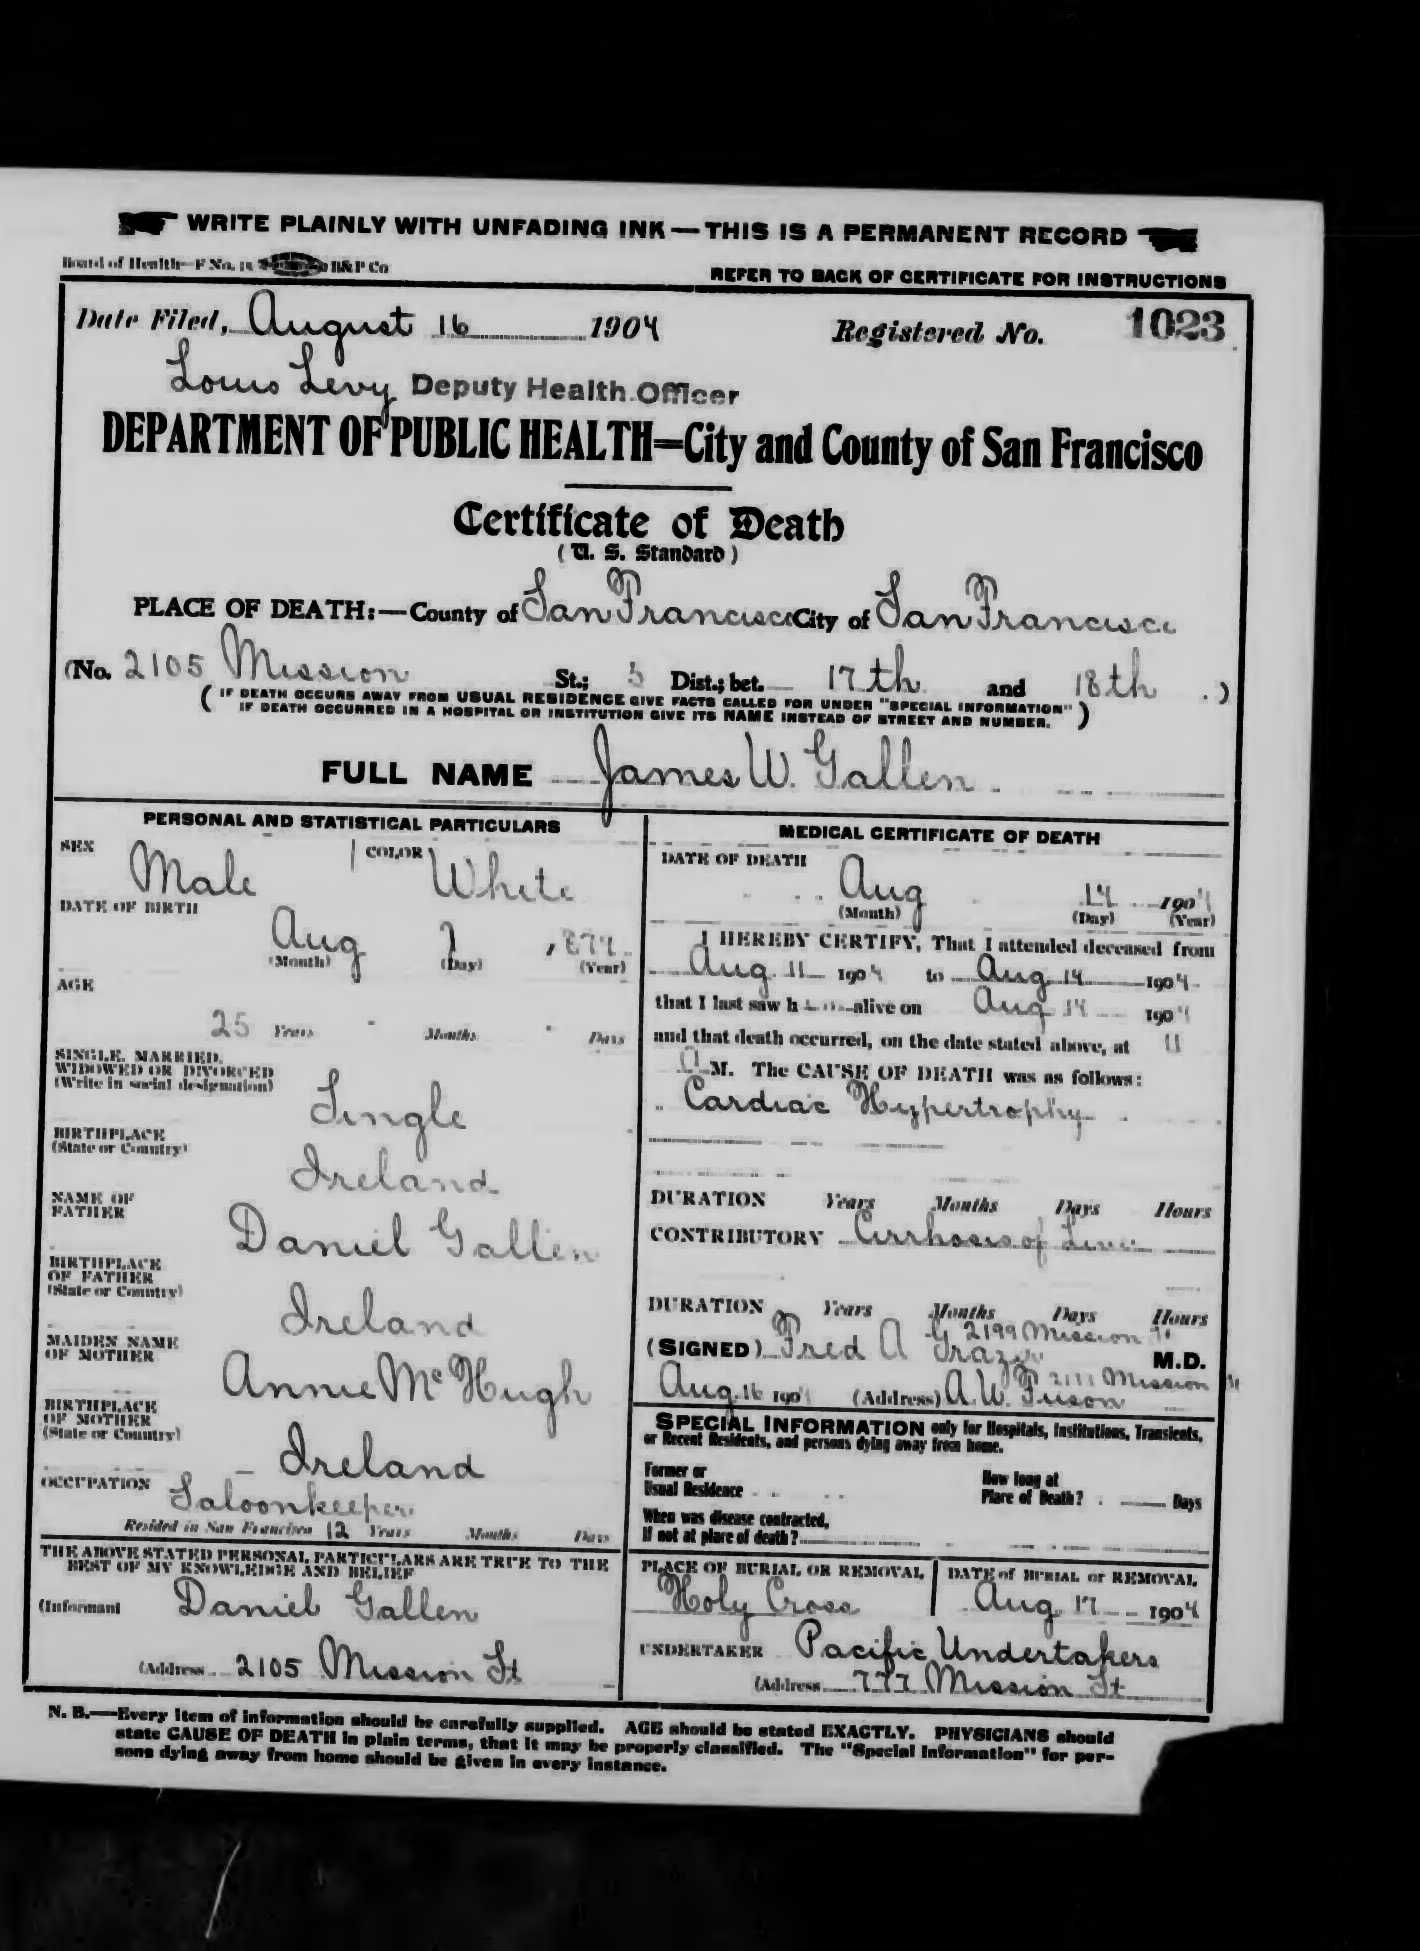 WRITE PLAINLY WITH UNFADING INK — THIS IS A PERMANENT RECORD
Board of Health—F No. B&P Co
REFER TO BACK OF CERTIFICATE FOR INSTRUCTIONS
Date Filed, August 16 1904 Registered No. 1023
Louis Levy Deputy Health Officer
DEPARTMENT OF PUBLIC HEALTH=City and County of San Francisco
Certificate of Death
(U. S. Standard)
PLACE OF DEATH:—County of San Francisco City of San Francisco
(No. 2105 Mission St.; 5 Dist.; bet. 17th and 18th .)
( IF DEATH OCCURS AWAY FROM USUAL RESIDENCE GIVE FACTS CALLED FOR UNDER "SPECIAL INFORMATION"
IF DEATH OCCURRED IN A HOSPITAL OR INSTITUTION GIVE ITS NAME INSTEAD OF STREET AND NUMBER. )
FULL NAME James W. Gallen
PERSONAL AND STATISTICAL PARTICULARS
SEX Male COLOR White
DATE OF BIRTH
Aug
(Month) (Day) (Year)
AGE
25 Years Months Days
SINGLE, MARRIED,
WIDOWED OR DIVORCED
(Write in social designation)
Single
BIRTHPLACE
(State or Country)
Ireland
NAME OF
FATHER
Daniel Gallen
BIRTHPLACE
OF FATHER
(State or Country)
Ireland
MAIDEN NAME
OF MOTHER
Annie McHugh
BIRTHPLACE
OF MOTHER
(State or Country)
Ireland
OCCUPATION Saloonkeeper
Resided in San Francisco 12 Years Months Days
THE ABOVE STATED PERSONAL PARTICULARS ARE TRUE TO THE
BEST OF MY KNOWLEDGE AND BELIEF
(Informant Daniel Gallen
(Address 2105 Mission St
MEDICAL CERTIFICATE OF DEATH
DATE OF DEATH
Aug 14 1904
(Month) (Day) (Year)
I HEREBY CERTIFY, That I attended deceased from
Aug 11 1904 to Aug 14 1904
that I last saw h im alive on Aug 14 1904
and that death occurred, on the date stated above, at 11
A M. The CAUSE OF DEATH was as follows:
Cardiac Hypertrophy
DURATION Years Months Days Hours
CONTRIBUTORY Cirrhosis of Liver
DURATION Years Months Days Hours
2199 Mission St
(SIGNED) Fred A G Frazer M.D.
2111 Mission St
Aug 16 1904 (Address) A. W. Tuson
SPECIAL INFORMATION only for Hospitals, Institutions, Transients,
or Recent Residents, and persons dying away from home.
Former or
Usual Residence
How long at
Place of Death? Days
When was disease contracted,
If not at place of death?
PLACE OF BURIAL OR REMOVAL
Holy Cross
DATE of BURIAL or REMOVAL
Aug 17 1904
UNDERTAKER Pacific Undertakers
(Address 777 Mission St
N. B.—Every item of information should be carefully supplied. AGE should be stated EXACTLY. PHYSICIANS should
state CAUSE OF DEATH in plain terms, that it may be properly classified. The "Special Information" for per-
sons dying away from home should be given in every instance.